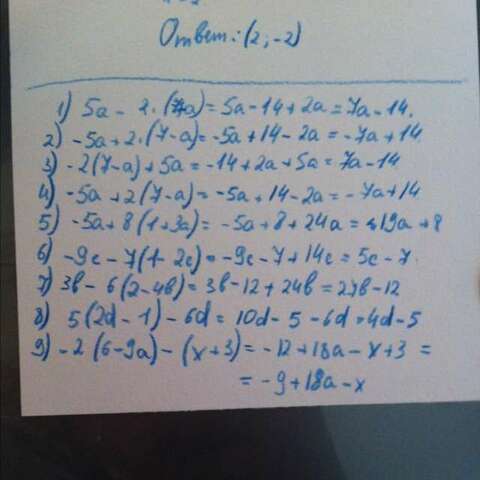 Ответ: (2; -2)
1) 5a - 2 · (7-a) = 5a - 14 + 2a = 7a - 14.
2) -5a + 2 · (7 - a) = -5a + 14 - 2a = -7a + 14
3) -2(7-a) + 5a = -14 + 2a + 5a = 7a - 14
4) -5a + 2(7-a) = -5a + 14 - 2a = -7a + 14
5) -5a + 8(1+3a) = -5a + 8 + 24a = 19a + 8
6) -9c - 7(1-2c) = -9c - 7 + 14c = 5c - 7.
7) 3b - 6(2-4b) = 3b - 12 + 24b = 27b - 12
8) 5(2d - 1) - 6d = 10d - 5 - 6d = 4d - 5
9) -2(6-9a) - (x+3) = -12 + 18a - x + 3 =
= -9 + 18a - x